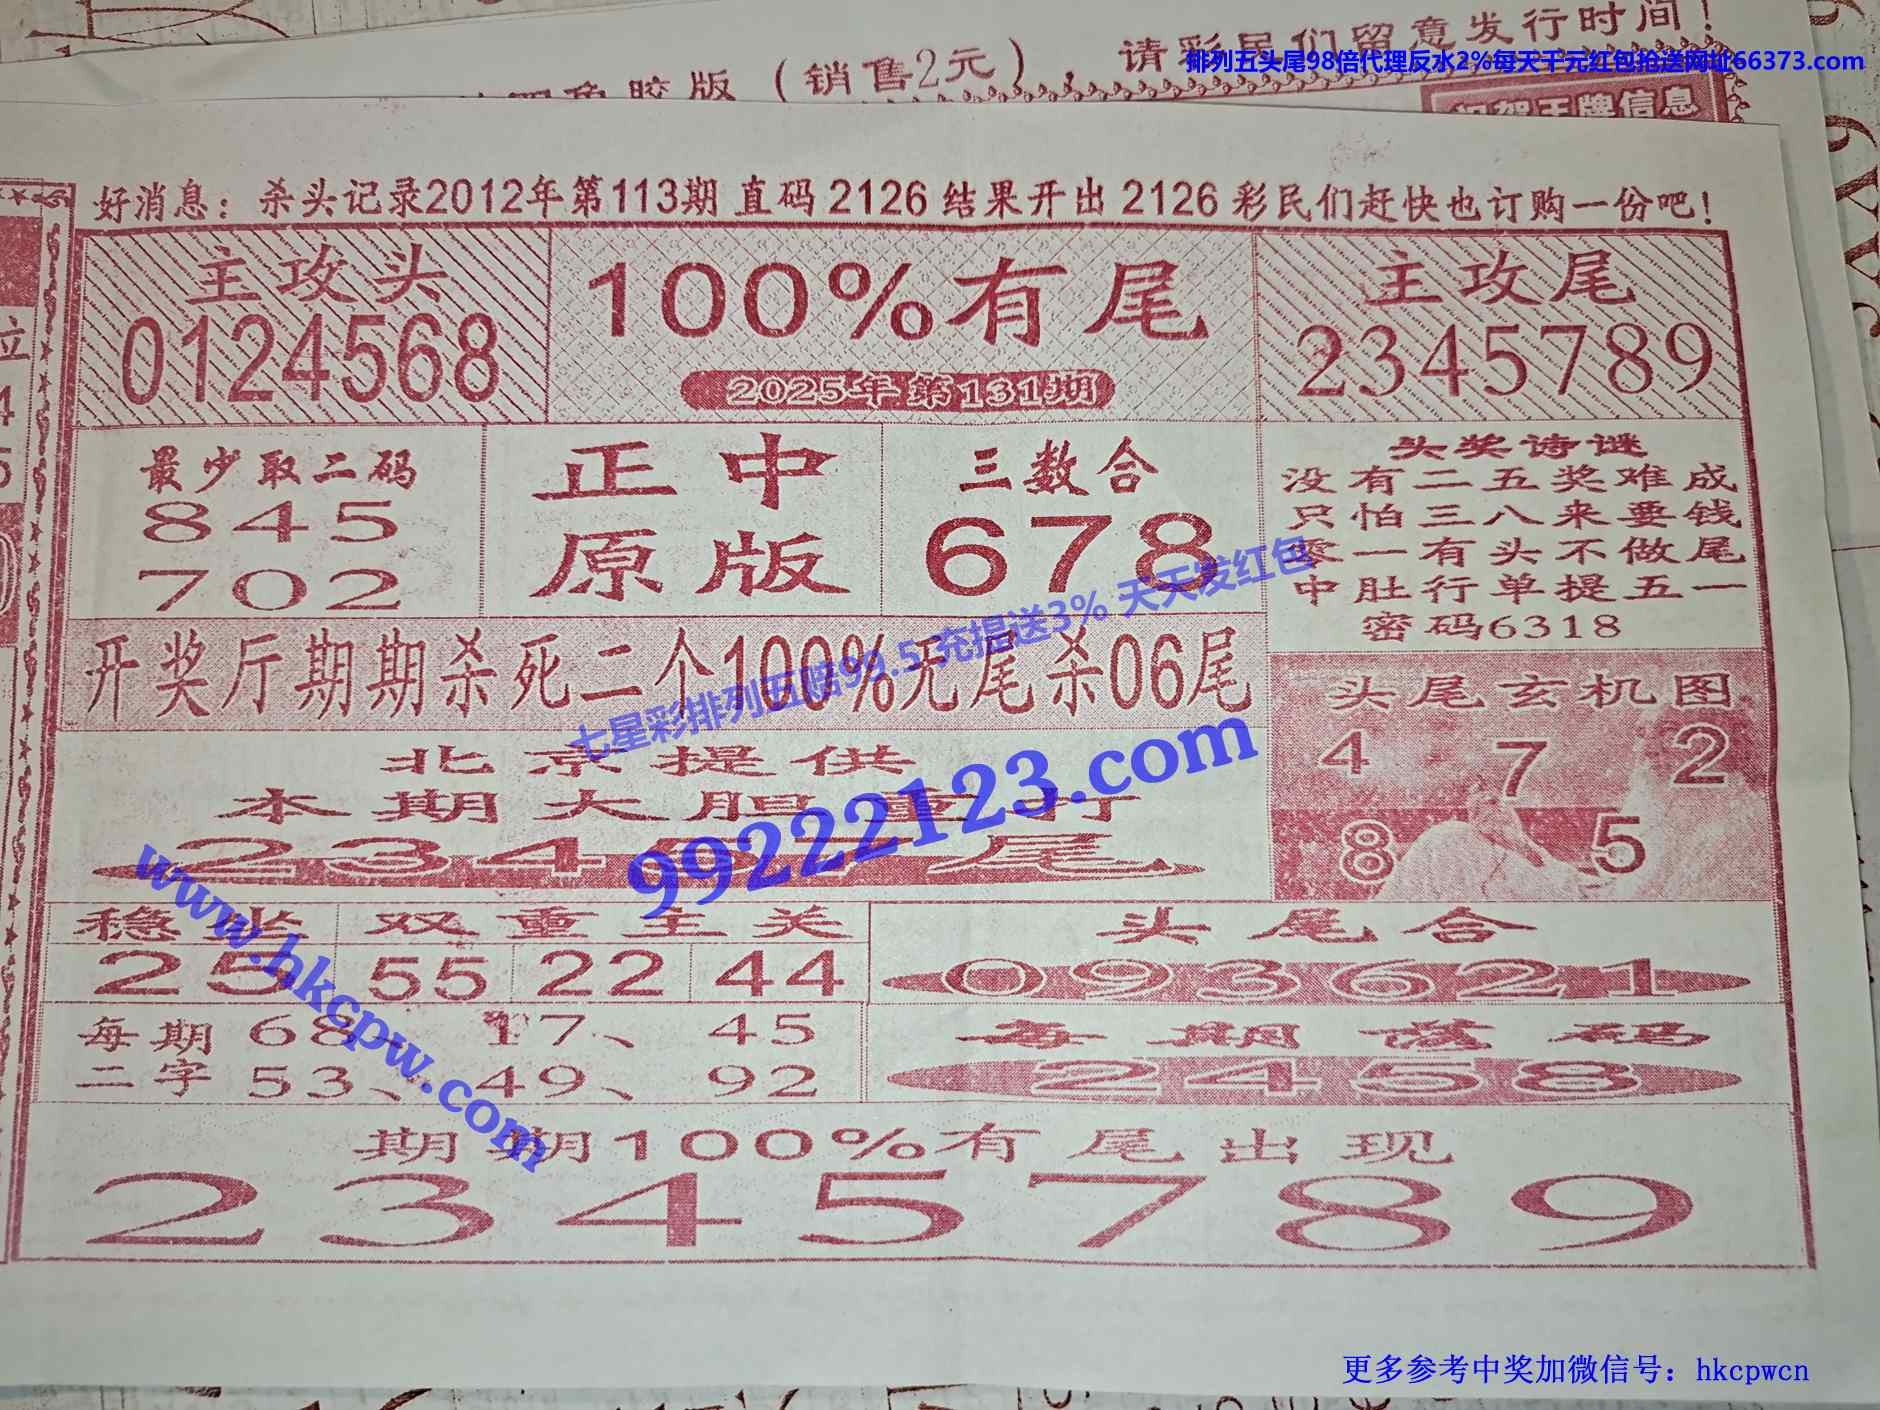 版（销售2元），请彩民们留意发行时间！
排列五头尾98倍代理反水2%每天千元红包抢送网址66373.com
王牌信息
好消息：杀头记录2012年第113期 直码 2126 结果开出 2126 彩民们赶快也订购一份吧！
主攻头
0124568
100%有尾
2025年第131期
主攻尾
2345789
最少取二码
845
702
正中
原版
三数合
678
头奖诗谜
没有二五奖难成
只怕三八来要钱
零一有头不做尾
中肚行单提五一
密码6318
开奖厅期期杀死二个100%无尾杀06尾
七星彩排列五赔99.5 充提送3% 天天发红包
头尾玄机图
4 7 2
8 5
北京提供
本期大胆重打
234 尾
99222123.com
www.hkcpw.com
稳坐
25
双重主关
55 22 44
头尾合
093621
每期 68、17、45
二字 53、49、92
每期 码
2458
期期100%有尾出现
2345789
更多参考中奖加微信号：hkcpwcn